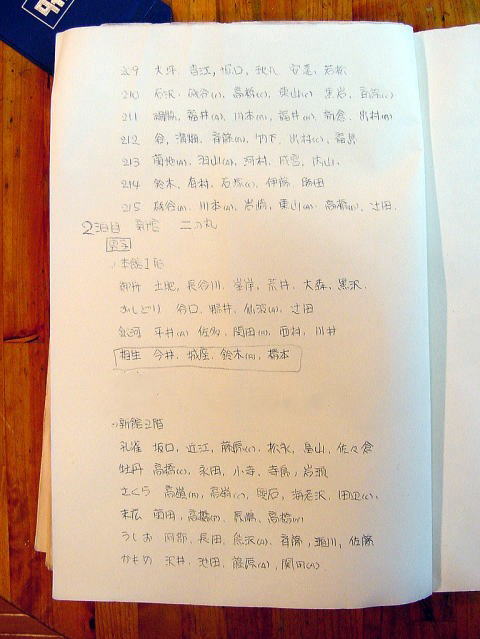 209 大坪、吉江、坂口、秋元、安達、若松
210 石沢、砥谷(c)、高橋(c)、東山(c)、黒岩、斉藤(c)
211 福井(A)、川本(B)、福井(B)、新倉、出村(B)
212 谷、溝畑、斉藤(B)、竹下、出村(c)、福島
213 菊地(A)、羽山(A)、河村、成宮、内山、
214 鈴木、有村、石塚(c)、伊藤、勝田
215 砥谷(A)、川本(A)、岩崎、東山(A)、高橋(A)、辻田、
2泊目 二の丸
男子
・本館1階
土肥、長谷川、峯岸、荒井、大森、黒沢、
おしどり 谷口、照井、仙波(A)、辻田
銀河 平井(A)、佐多、関田(B)、西村、川井
相生 今井、城座、鈴木(B)、橋本
・新館2階
孔雀 坂口、近江、藤原(c)、松永、畠山、佐々倉
牡丹 高橋(c)、永田、小寺、寺島、岩瀬
さくら 高嶺(B)、高嶺(c)、海老沢、田辺(c)、
末広 菊田、高橋(B)、長嶋、高橋(A)
うしお 阿部、長田、熊沢(A)、斉藤、堀川、佐藤
かもめ 沢井、池田、篠原(A)、関田(A)